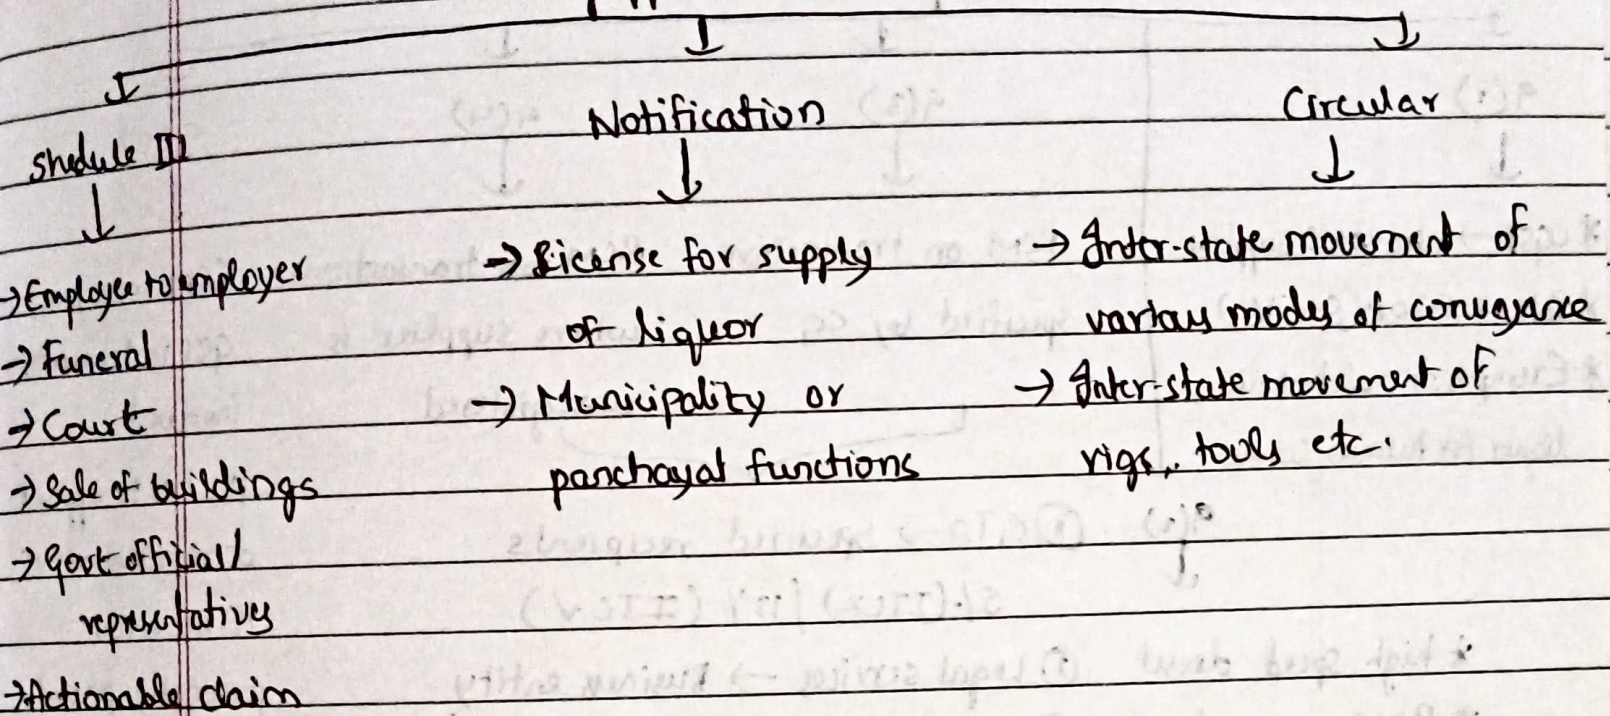 Notification
Circular
Shedule III
→ Employee to employer
→ Funeral
→ Court
→ Sale of buildings
→ Govt official/
representatives
→ Actionable claim
→ License for supply
of liquor
→ Municipality or
panchayat functions
→ Inter-state movement of
various modes of conveyance
→ Inter-state movement of
rigs, tools etc.